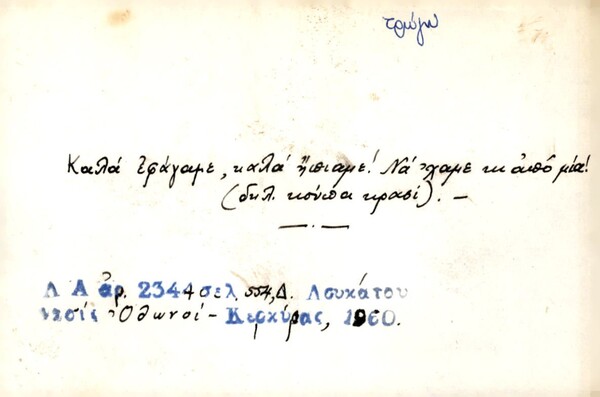 τρώγω
Καλά ἐφάγαμε, καλά ἤπιαμε! Νά 'χαμε κι ἀπό μία!
(δηλ. κούπα κρασί). —
Λ Α ἀρ. 2344 σελ. 554, Δ. Λουκάτου
νησίς Ὀθωνοί - Κερκύρας, 1960.